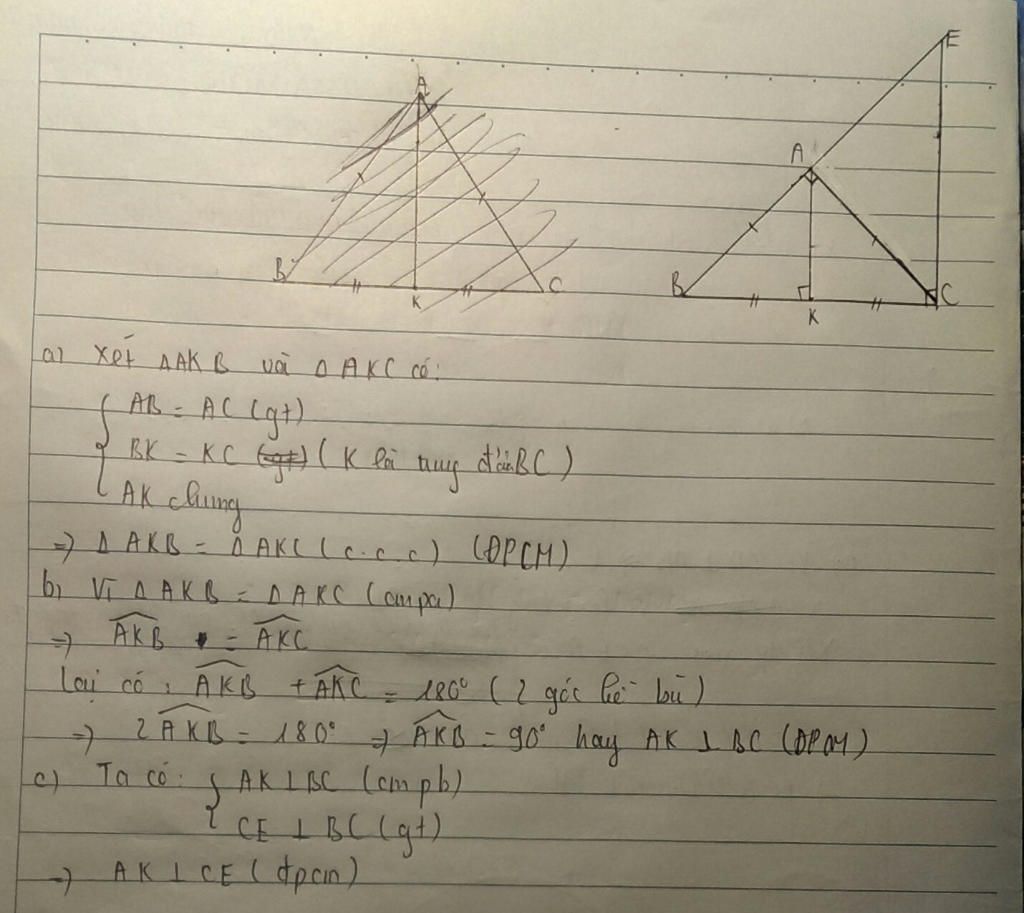 A
B
K
C
E
A
B
K
C
a) Xét ΔAKB và ΔAKC có:
AB = AC (gt)
BK = KC (gt) (K là trung điểm BC)
AK chung
=> ΔAKB = ΔAKC (c.c.c) (ĐPCM)
b) Vì ΔAKB = ΔAKC (cmpa)
=> \widehat{AKB} = \widehat{AKC}
Lại có: \widehat{AKB} + \widehat{AKC} = 180° (2 góc kề bù)
=> 2\widehat{AKB} = 180° => \widehat{AKB} = 90° hay AK ⊥ BC (ĐPCM)
c) Ta có: { AK ⊥ BC (cmpb)
CE ⊥ BC (gt)
=> AK ⊥ CE (đpcm)